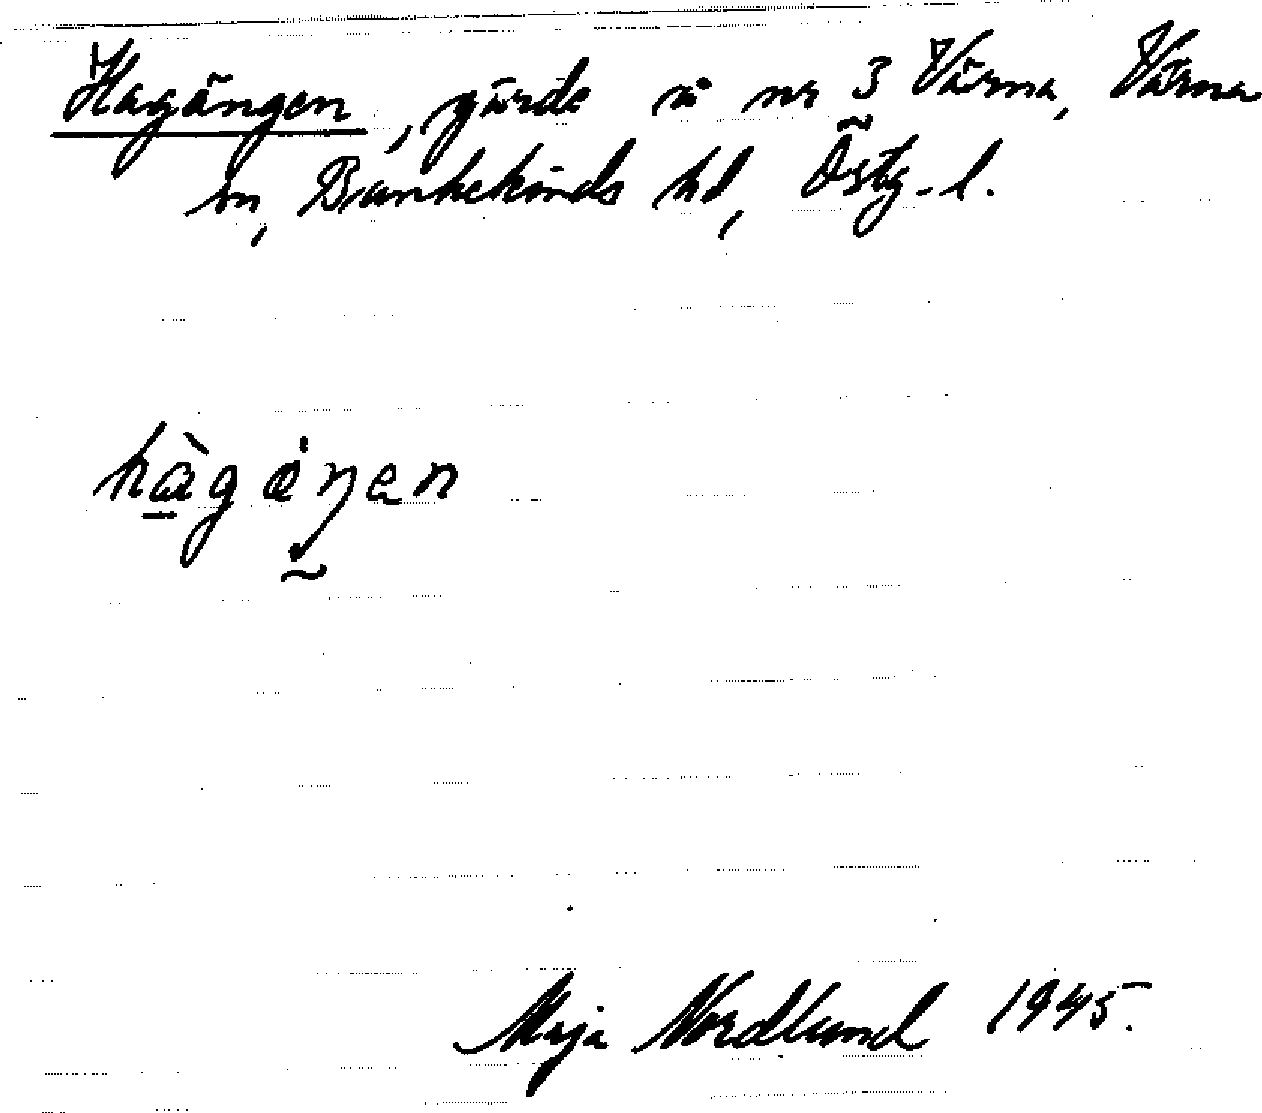 Hagängen, gärde å nr 3 Värna, Värna
sn, Bankekinds hd, Östg.l.
hàgäŋen
Maja Nordlund 1945.